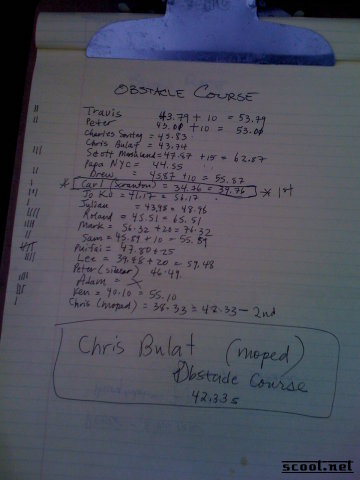 OBSTACLE COURSE
Travis 43.79 + 10 = 53.79
Peter 43.00 + 10 = 53.00
Charles = 43.83
Chris Bulat = 43.74
Scott = 47.87 + 15 = 62.87
Papa NYC = 44.55
Drew = 45.87 + 10 = 55.87
* Carl (Scranton) = 34.76 = 39.76 * 1st
Jo KU = 41.17 = 56.17
Julian = 43.98 = 48.98
Roland = 45.51 = 65.51
Mark = 56.32 + 20 = 76.32
Sam = 45.89 + 10 = 55.89
= 47.80 + 25
Lee = 39.48 + 20 = 59.48
Peter (silver) 46.49
Adam = X
Ken = 40.10 = 55.10
Chris (moped) = 38.33 = 48.33 - 2nd
Chris Bulat (moped)
Obstacle Course
42.33s
scoot.net